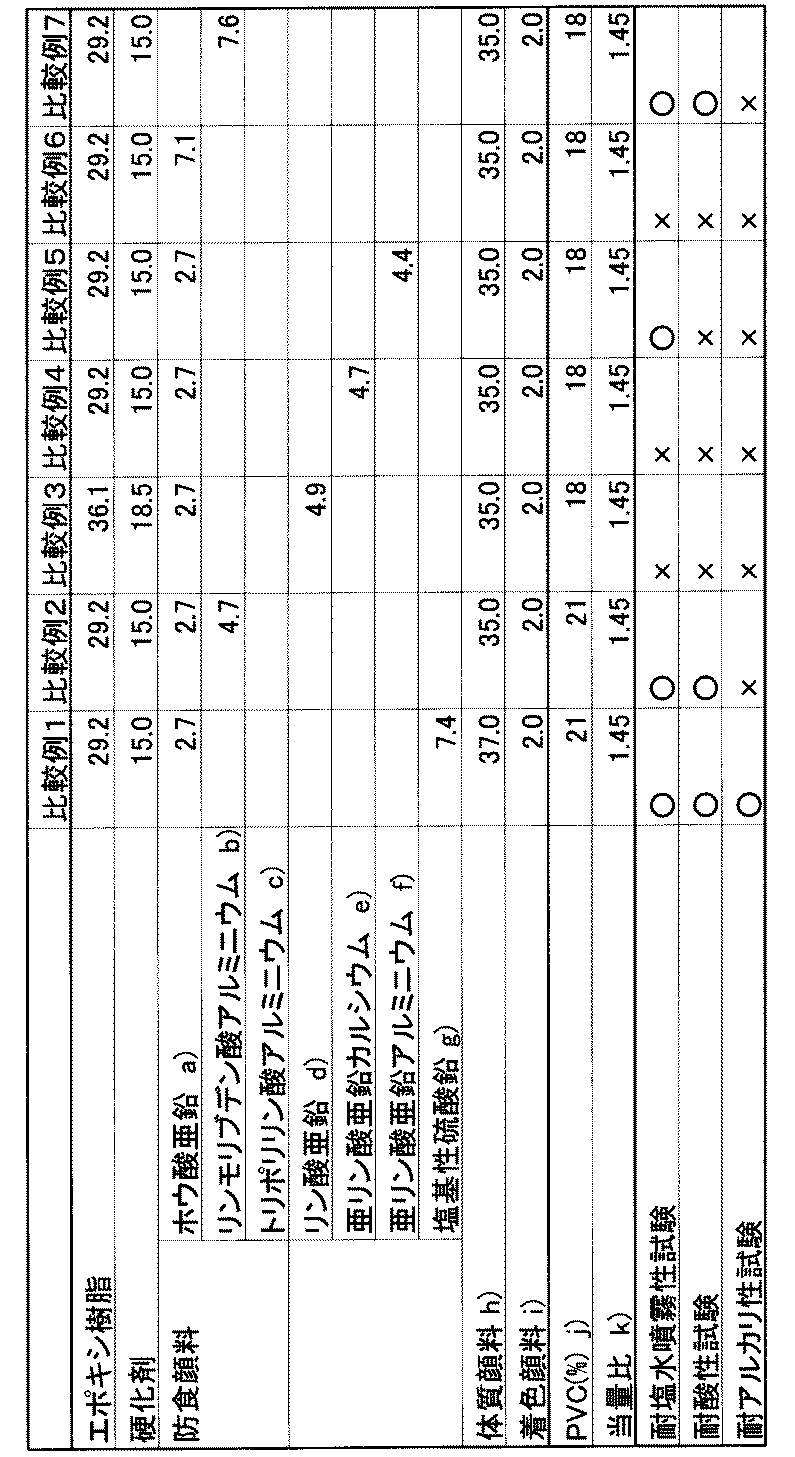 比較例1 比較例2 比較例3 比較例4 比較例5 比較例6 比較例7
エポキシ樹脂 29.2 29.2 36.1 29.2 29.2 29.2 29.2
硬化剤 15.0 15.0 18.5 15.0 15.0 15.0 15.0
防食顔料 ホウ酸亜鉛 a) 2.7 2.7 2.7 2.7 2.7 7.1
リンモリブデン酸アルミニウム b) 4.7 7.6
トリポリリン酸アルミニウム c)
リン酸亜鉛 d) 4.9
亜リン酸亜鉛カルシウム e) 4.7
亜リン酸亜鉛アルミニウム f) 4.4
塩基性硫酸鉛 g) 7.4
体質顔料 h) 37.0 35.0 35.0 35.0 35.0 35.0 35.0
着色顔料 i) 2.0 2.0 2.0 2.0 2.0 2.0 2.0
PVC(%) j) 21 21 18 18 18 18 18
当量比 k) 1.45 1.45 1.45 1.45 1.45 1.45 1.45
耐塩水噴霧性試験 ○ ○ × × ○ × ○
耐酸性試験 ○ ○ × × × × ○
耐アルカリ性試験 ○ × × × × × ×